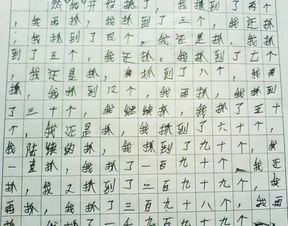 然我开始抓了，我抓了两个
，我再抓，我抓到了三个，我还抓
；我抓到了四个，我还是抓，我抓
到了五个，我还抓，我抓到了七个
，我还是抓，我抓到了八个，我再
抓，我抓到12个，我再抓，我抓
了三十个，我继续抓，我抓了五十
个，我还是抓，我抓到了六十个，
我陆续的抓，我抓到了九十个，我
一直抓，我抓了一百九十个，我还
抓，我又抓到了二百九十九个，我
再抓，我抓了三百九十八个，我再
抓，我抓了一千九百九十九个，